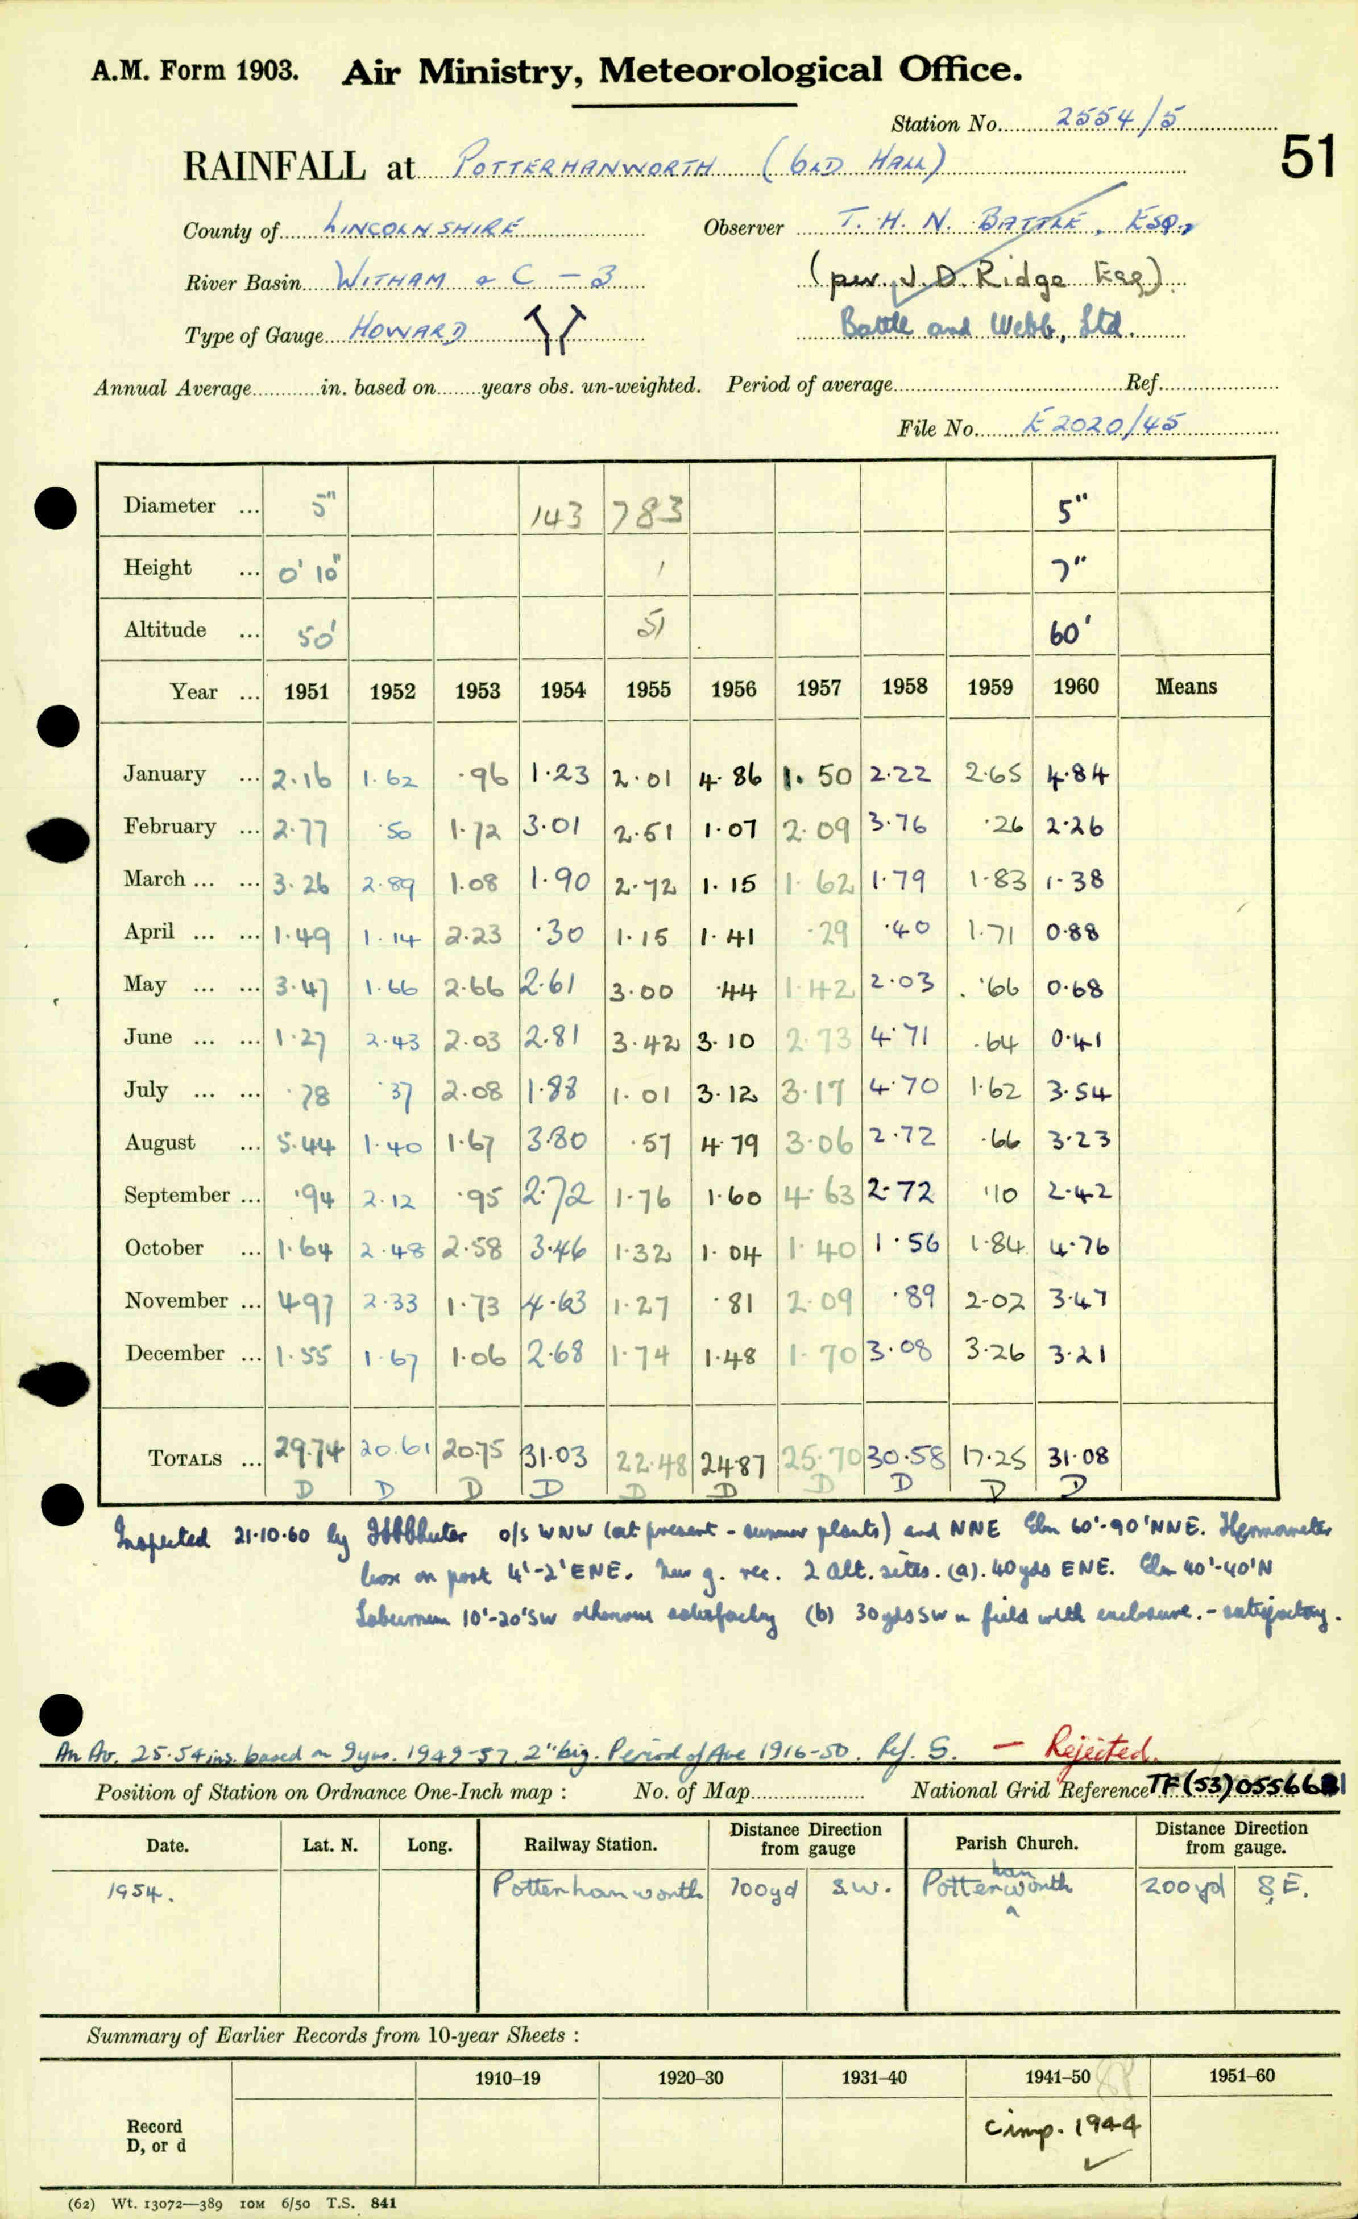 A.M. Form 1903. Air Ministry, Meteorological Office.
Station No. 2554/5
51
RAINFALL at POTTERHANWORTH (OLD HALL)
County of LINCOLNSHIRE Observer T. H. N. BATTLE, ESQ.
River Basin WITHAM & C - 3 (per J. D. Ridge Esq)
Type of Gauge HOWARD Battle and Webb, Ltd.
Annual Average in. based on years obs. un-weighted. Period of average Ref.
File No. E 2020/45
Diameter ... 5" 143 783 5"
Height ... 0' 10" 1 7"
Altitude ... 50' 51 60'
Year ... 1951 1952 1953 1954 1955 1956 1957 1958 1959 1960 Means
January ... 2.16 1.62 .96 1.23 2.01 4.86 1.50 2.22 2.65 4.84
February ... 2.77 .50 1.72 3.01 2.51 1.07 2.09 3.76 .26 2.26
March ... ... 3.26 2.89 1.08 1.90 2.72 1.15 1.62 1.79 1.83 1.38
April ... ... 1.49 1.14 2.23 .30 1.15 1.41 .29 .40 1.71 0.88
May ... ... 3.47 1.66 2.66 2.61 3.00 .44 1.42 2.03 .66 0.68
June ... ... 1.27 2.43 2.03 2.81 3.42 3.10 2.73 4.71 .64 0.41
July ... ... .78 .37 2.08 1.88 1.01 3.12 3.17 4.70 1.62 3.54
August ... 5.44 1.40 1.67 3.80 .57 4.79 3.06 2.72 .66 3.23
September ... .94 2.12 .95 2.72 1.76 1.60 4.63 2.72 .10 2.42
October ... 1.64 2.48 2.58 3.46 1.32 1.04 1.40 1.56 1.84 4.76
November ... 4.97 2.33 1.73 4.63 1.27 .81 2.09 .89 2.02 3.47
December ... 1.55 1.67 1.06 2.68 1.74 1.48 1.70 3.08 3.26 3.21
TOTALS ... 29.74 20.61 20.75 31.03 22.48 24.87 25.70 30.58 17.25 31.08
D D D D D D D D D D
Inspected 21.10.60 by o/s WNW (at present - summer plants) and NNE Elm 60'-90' NNE. Thermometer
box on post 4'-2' ENE. New g. rec. 2 alt. sites. (a). 40yds ENE. Elm 40'-40'N
Laburnum 10'-20' SW otherwise satisfactory (b) 30yds SW in field with enclosure. - satisfactory.
An Av. 25.54 ins. based on 9 yrs. 1949-57. 2" big. Period of Ave 1916-50. Ref. S. - Rejected.
Position of Station on Ordnance One-Inch map : No. of Map National Grid Reference TF(53)055661
Date. Lat. N. Long. Railway Station. Distance from gauge Direction Parish Church. Distance from gauge. Direction
1954. Potterhanworth 700yd S.W. Potterhanworth 200yd S.E.
Summary of Earlier Records from 10-year Sheets :
1910–19 1920–30 1931–40 1941–50 1951–60
Record
D, or d
Cimp. 1944
(62) Wt. 13072—389 10M 6/50 T.S. 841